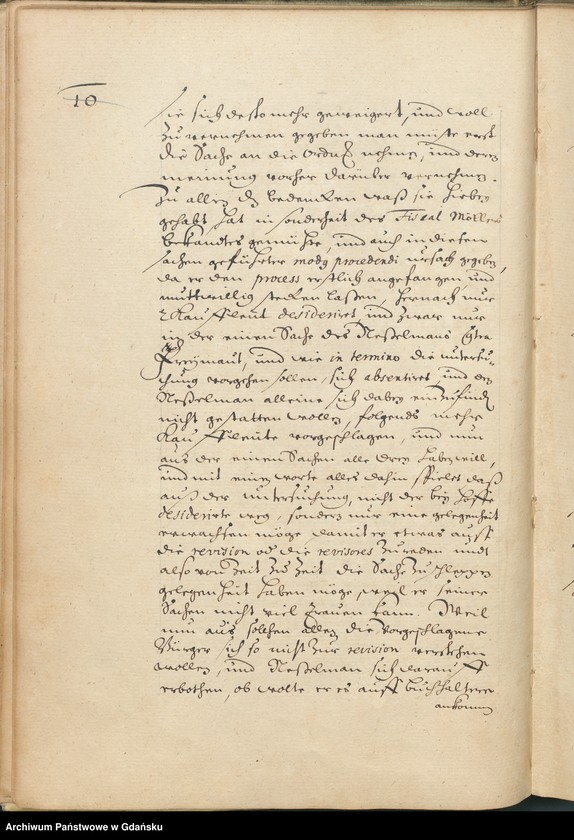 10
sie sich desto mehr geweigert, und woll
zu vernehmen gegeben man müste erst
die Sache an die Ordnung nehmen, und deren
meinung vorher darüber vernehmen.
Zu allen bedencken waß sie hiebey
gehabt, hat in sonderheit des Fiscal Möllers
bekandtes gemühte, und auch in diesen
sachen geführter modus procedendi uhrsach gegeben,
da er den process erstlich angefangen, und
muthwillig stecken laßen, hernach nur
2 Kauffleut desideriret, und zwar nur
in der einen Sache des Neßelmans
Freymaut, und wie in termino die untersu-
chung vorgehen sollen, sich absentiret, und den
Neßelman alleine sich dabey einzufinden
nicht gestatten wollen, folgends mehr
Kauffleute vorgeschlagen, und nun
aus der einen Sachen alle drey haben will,
und mit einem worte alles dahin spielet daß
auß der untersuchung, nicht der bey Hoffe
desiderirte weg, sondern nur eine gelegenheit
erwachsen möge damit er etwas auff
die revision od die revisores zu reden undt
also von Zeit zu Zeit die Sache zu schleppen
gelegenheit haben möge, weil er seiner
Sachen nicht viel trauen kann. Weil
nun aus solchen allen die vorgeschlagene
Bürger sich so nicht zur revision verstehen
wollen, und Neßelman sich darauff
erbothen, ob wolte er es auff buchhaltere
ankommen
Archiwum Państwowe w Gdańsku